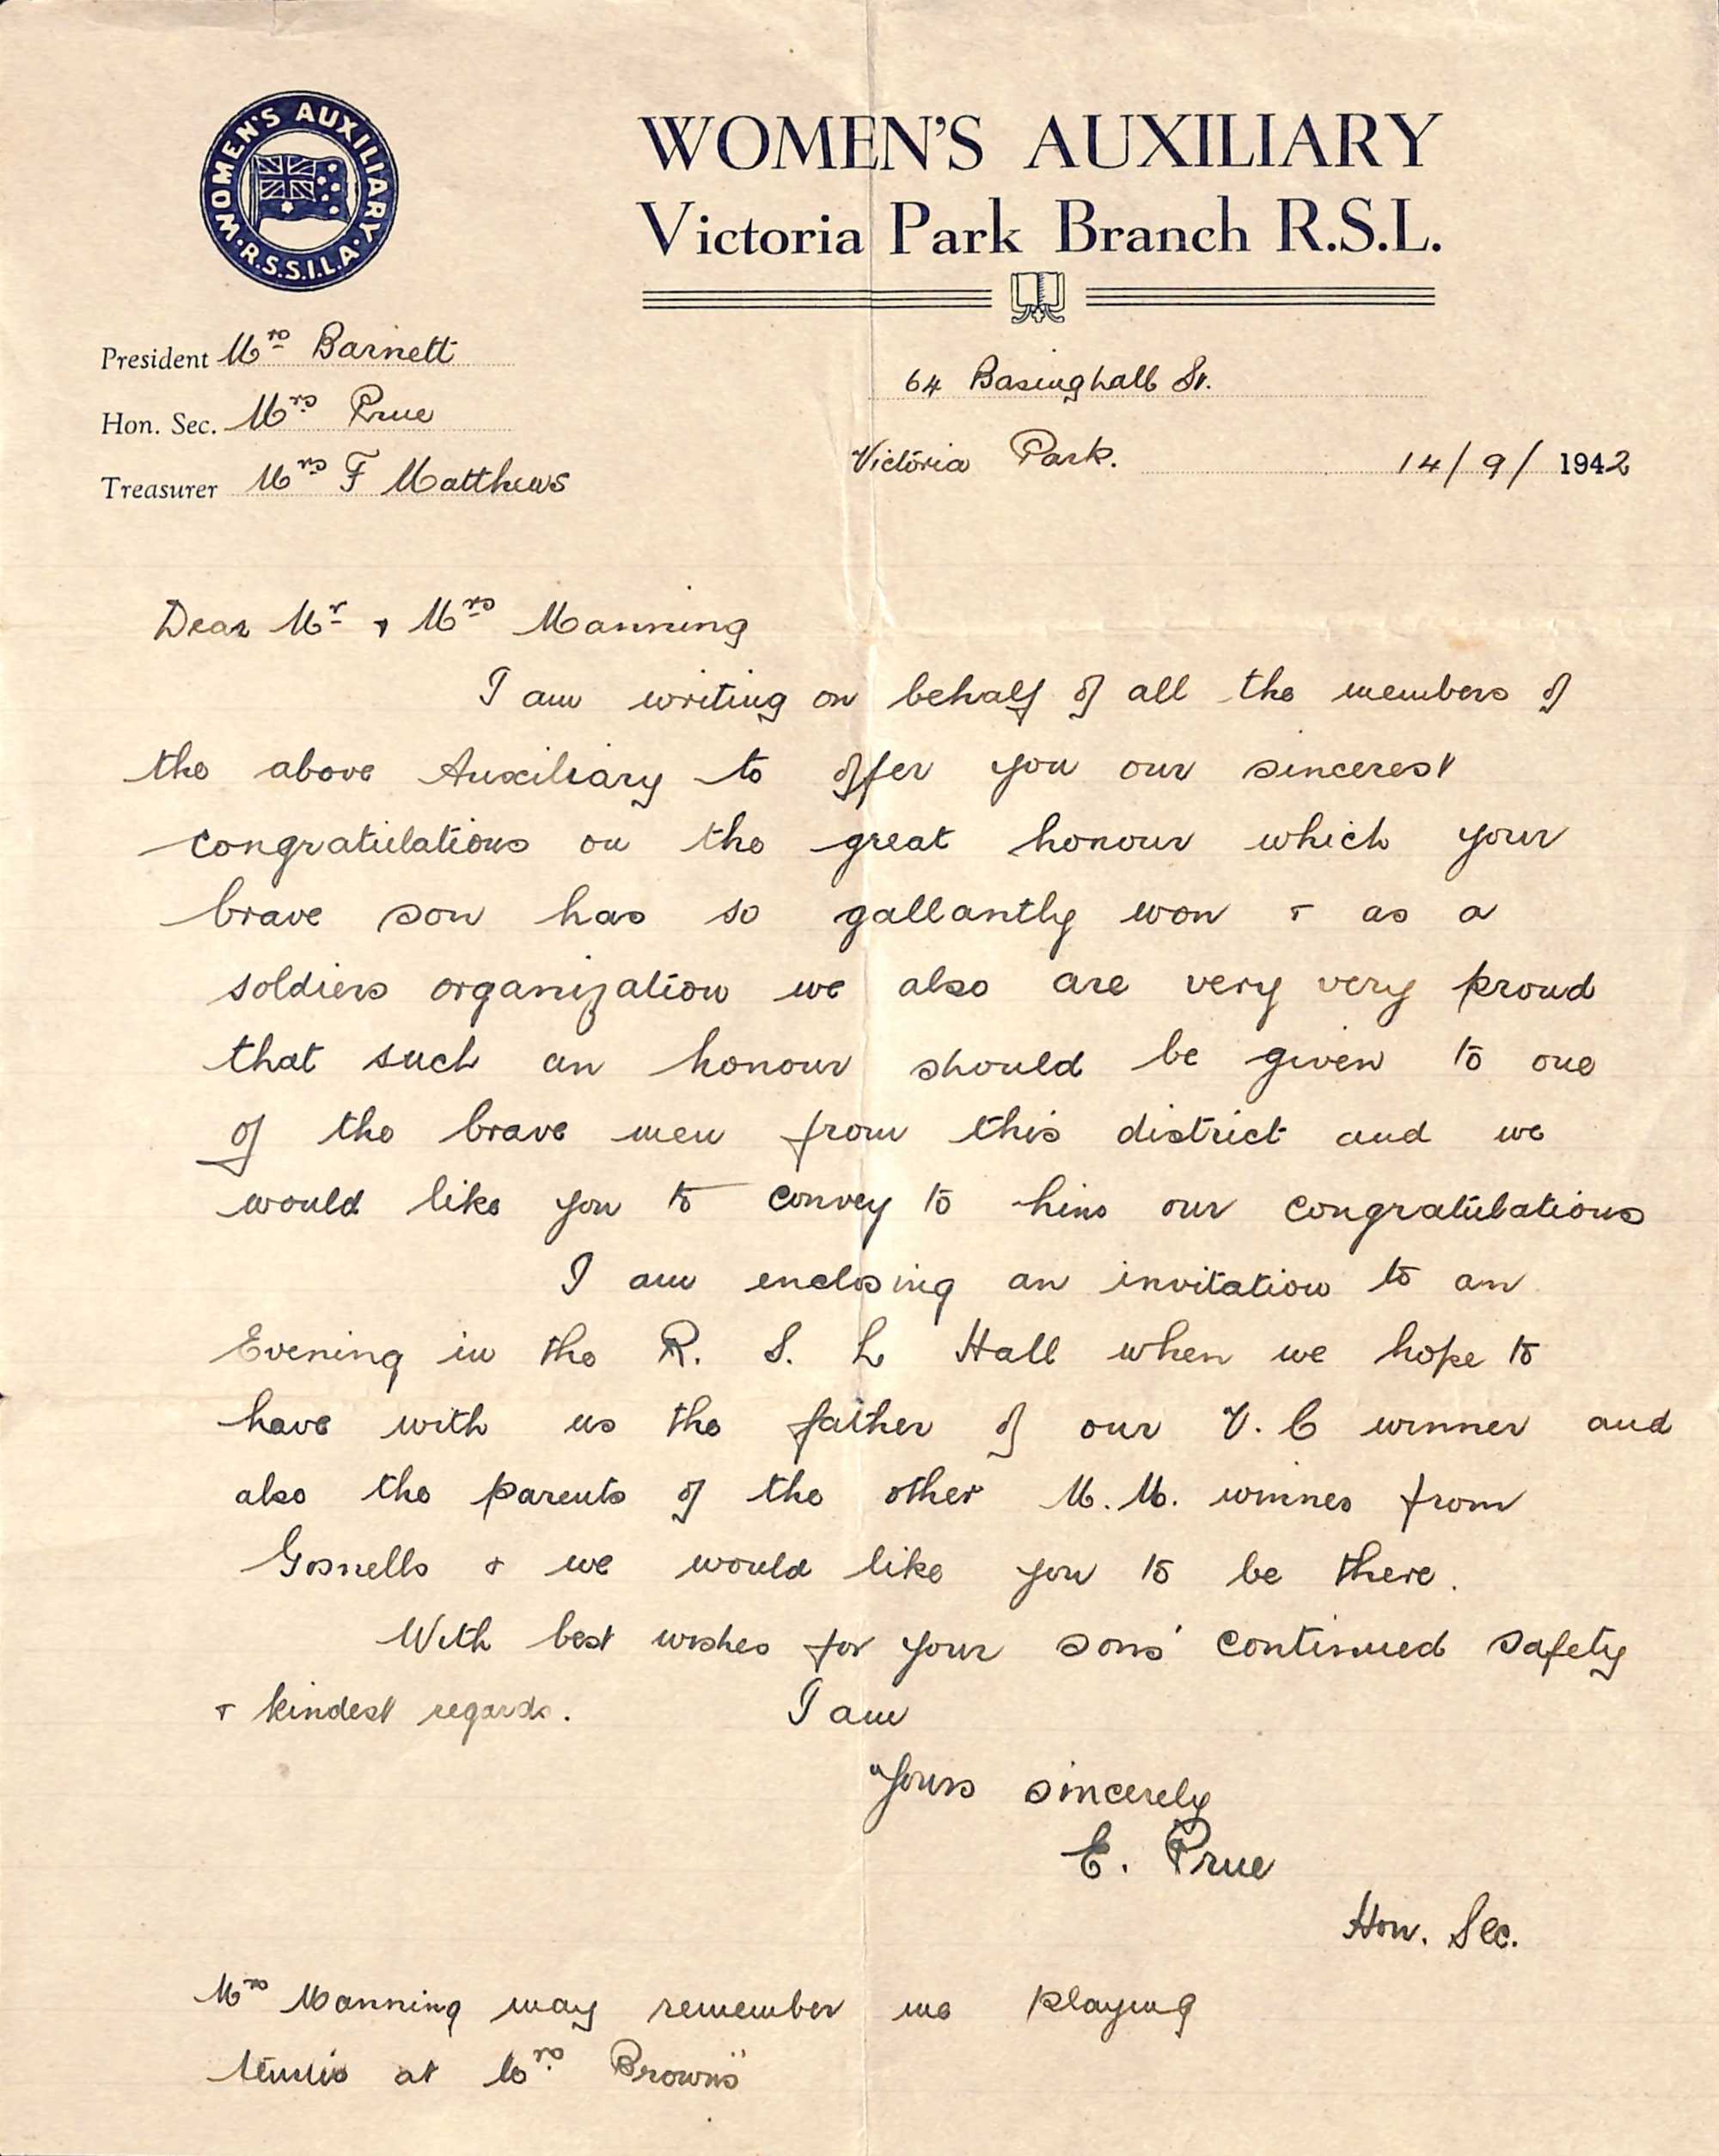 WOMEN'S AUXILIARY
R.S.S.I.L.A.
WOMEN'S AUXILIARY
Victoria Park Branch R.S.L.
President Mrs Barnett
Hon. Sec. Mrs Prue
Treasurer Mrs F Matthews
64 Basinghall St.
Victoria Park. 14/9/1942
Dear Mr & Mrs Manning
I am writing on behalf of all the members of
the above Auxiliary to offer you our sincerest
congratulations on the great honour which your
brave son has so gallantly won & as a
soldiers organization we also are very very proud
that such an honour should be given to one
of the brave men from this district and we
would like you to convey to him our congratulations
I am enclosing an invitation to an
Evening in the R. S. L Hall when we hope to
have with us the father of our V. C winner and
also the parents of the other M. M. winnes from
Gosnells & we would like you to be there.
With best wishes for your sons' continued safety
& kindest regards. I am
Yours sincerely
E. Prue
Hon. Sec.
Mrs Manning may remember me playing
tennis at Mrs Brown's